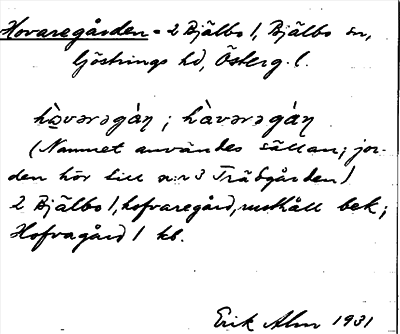 Hovaregården = 2 Bjälbo 1, Bjälbo sn,
Göstrings hd, Österg. l.
hò̤vərəgàɳ ; hàvərəgàɳ
(Namnet användes sällan; jor-
den hör till nr 3 Trädgården)
2 Bjälbo 1, hofvaregård, rusthåll bek;
Hofvagård 1 kb.
Erik Alm 1931